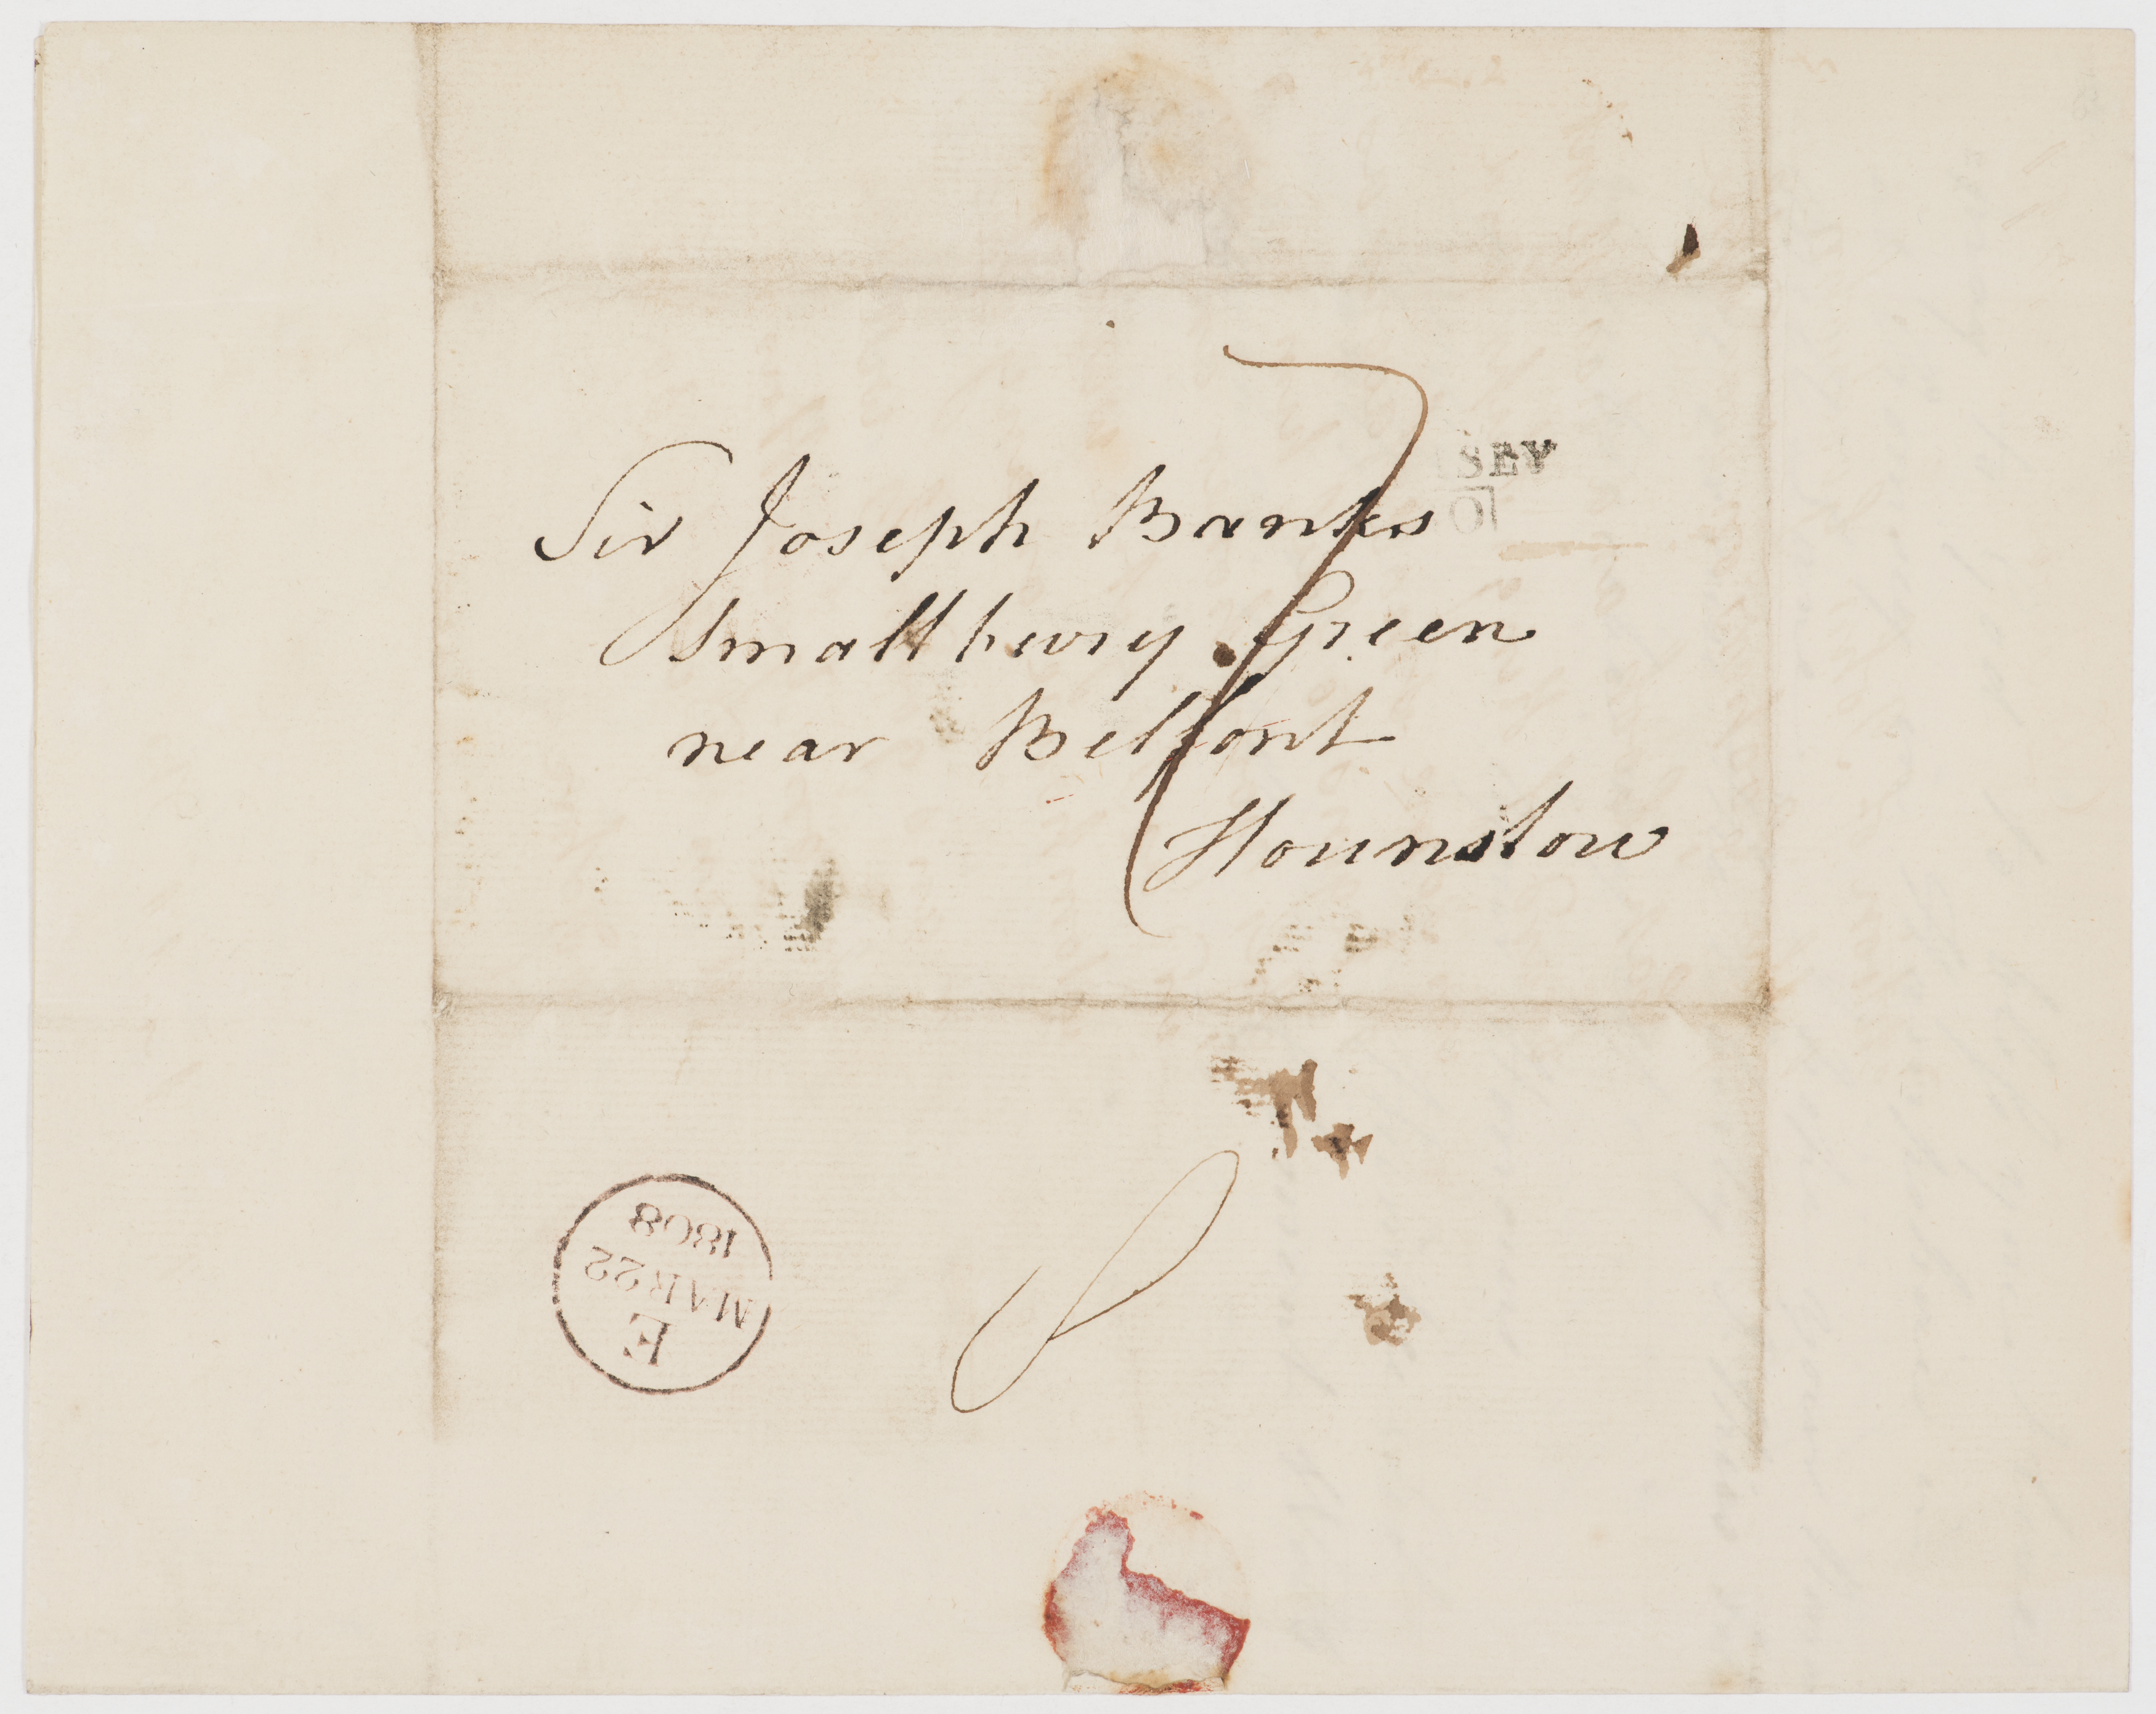 Sir Joseph Banks
Smallbury Green
near Belfont
Hounslow
7
E
MAR 22
1808